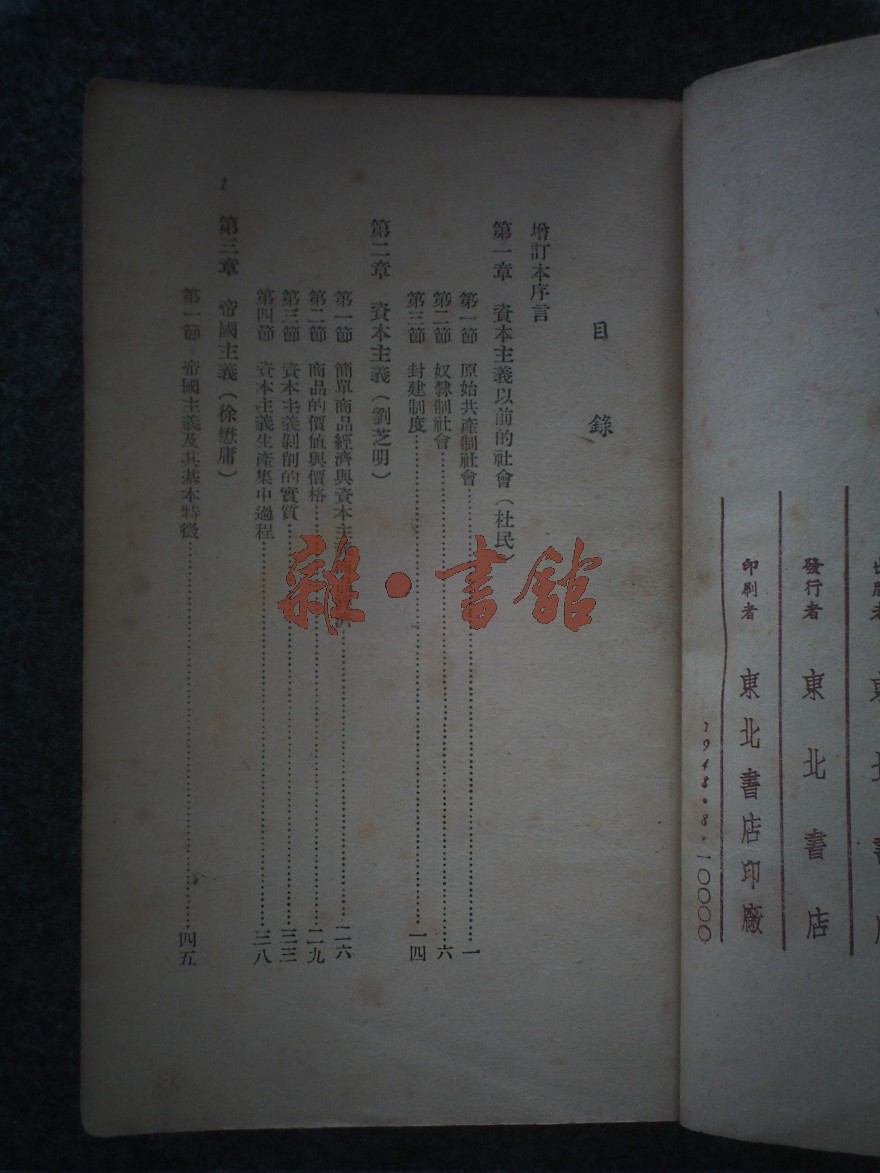 出版者 東北書店
發行者 東北書店
印刷者 東北書店印廠
1948.8.一0000
目錄
增訂本序言
第一章 資本主義以前的社會(杜民)
第一節 原始共產制社會……一
第二節 奴隸制社會……六
第三節 封建制度……一四
第二章 資本主義(劉芝明)
第一節 簡單商品經濟與資本主……二六
第二節 商品的價値與價格……二九
第三節 資本主義剝削的實質……三三
第四節 資本主義生產集中過程……三八
第三章 帝國主義(徐懋庸)
第一節 帝國主義及其基本特徵……四五
1
雜·書館